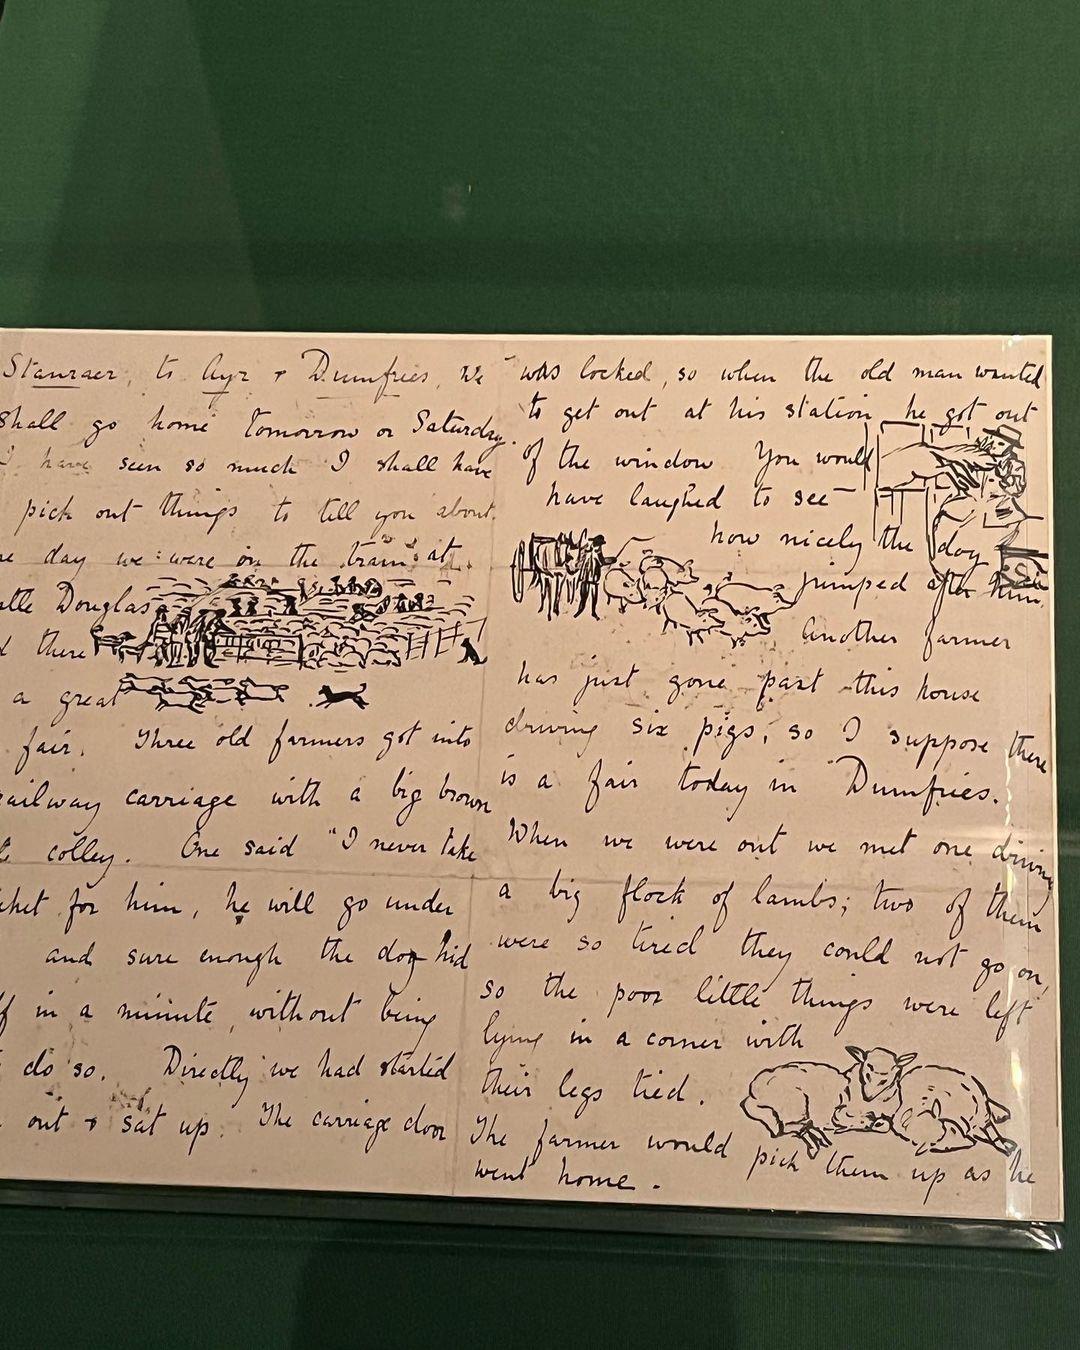 Stanraer, to Ayr & Dumfries, We
shall go home tomorrow or Saturday.
I have seen so much I shall have
pick out things to tell you about.
day we were on the train at
Douglas
there
a great
fair. Three old farmers got into
railway carriage with a big brown
colley. One said "I never take
for him, he will go under
and sure enough the dog hid
in a minute, without being
do so. Directly we had started
out & sat up. The carriage door
was locked, so when the old man wanted
to get out at his station he got out
of the window You would
have laughed to see
how nicely the dog
jumped after him.
Another farmer
has just gone past this house
driving six pigs, so I suppose there
is a fair today in Dumfries.
When we were out we met one driving
a big flock of lambs; two of them
were so tired they could not go on,
so the poor little things were left
lying in a corner with
their legs tied.
The farmer would pick them up as he
went home.